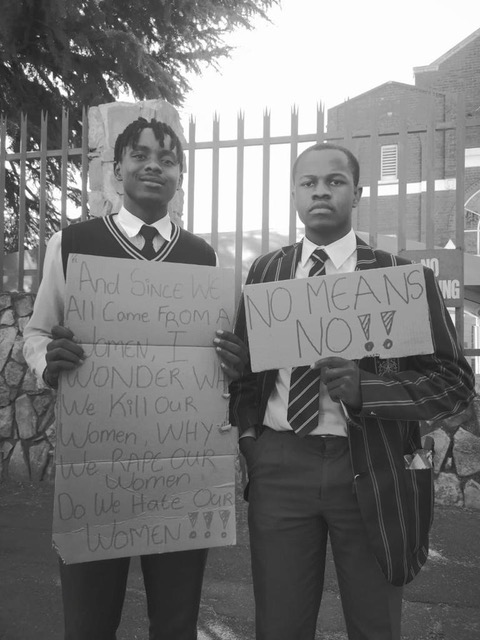 "And SINCE WE
All Came FROM A
Women, I
WONDER WH
We Kill Our
Women, WHY
We RAPE OUR
Women!
Do We Hate Our
WOMEN!!!
NO MEANS
NO!!
NO